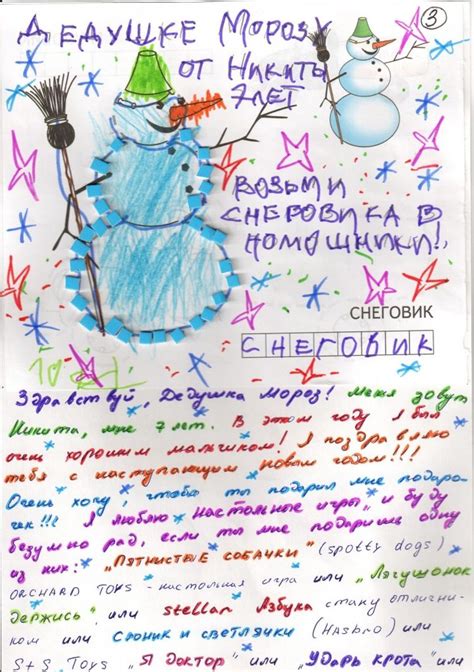 3
ДЕДУШКЕ МОРОЗУ
ОТ НИКИТЫ
7ЛЕТ
ВОЗЬМИ
СНЕГОВИКА В
ПОМОЩНИКИ!
СНЕГОВИК
СНЕГОВИК
Здравствуй, Дедушка Мороз! Меня зовут
Никита, мне 7 лет. В этом году я был
очень хорошим мальчиком! Я поздравляю
тебя с наступающим новым годом!!!
Очень хочу, чтобы ты подарил мне подаро-
чек!!! Я люблю настольные игры, и буду
безумно рад, если ты мне подаришь одну
из них: "Пятнистые собачки" (spotty dogs)
ORCHARD TOYS - настольная игра или "Лягушонок
держись" или stellar Азбука стану отлични-
ком или Слоник и светлячки (Hasbro) или
S+S Toys "Я доктор" или "Ударь крота" или